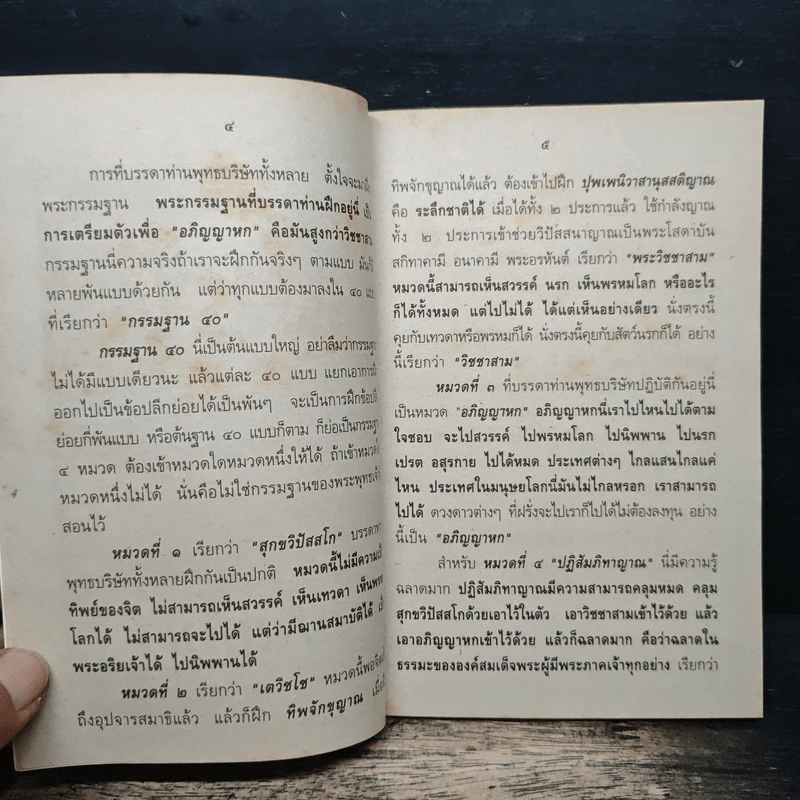 ๔
การที่บรรดาท่านพุทธบริษัททั้งหลาย ตั้งใจจะมา
พระกรรมฐาน พระกรรมฐานที่บรรดาท่านฝึกอยู่นี่
การเตรียมตัวเพื่อ "อภิญญาหก" คือมันสูงกว่าวิชชาสาม
กรรมฐานนี่ความจริงถ้าเราจะฝึกกันจริงๆ ตามแบบ
หลายพันแบบด้วยกัน แต่ว่าทุกแบบต้องมาลงใน ๔๐ แบบ
ที่เรียกว่า "กรรมฐาน ๔๐"
กรรมฐาน ๔๐ นี่เป็นต้นแบบใหญ่ อย่าลืมว่ากรรมฐาน
ไม่ได้มีแบบเดียวนะ แล้วแต่ละ ๔๐ แบบ แยกเอาการ
ออกไปเป็นข้อปลีกย่อยได้เป็นพันๆ จะเป็นการฝึกข้อ
ย่อยกี่พันแบบ หรือต้นฐาน ๔๐ แบบก็ตาม ก็ย่อเป็นกรรมฐาน
๔ หมวด ต้องเข้าหมวดใดหมวดหนึ่งให้ได้ ถ้าเข้าหมวดใด
หมวดหนึ่งไม่ได้ นั่นคือไม่ใช่กรรมฐานของพระพุทธเจ้า
สอนไว้
หมวดที่ ๑ เรียกว่า "สุกขวิปัสสโก" บรรดาท่าน
พุทธบริษัททั้งหลายฝึกกันเป็นปกติ หมวดนี้ไม่มีความเป็น
ทิพย์ของจิต ไม่สามารถเห็นสวรรค์ เห็นเทวดา เห็นพรหม
โลกได้ ไม่สามารถจะไปได้ แต่ว่ามีฌานสมาบัติได้ เป็น
พระอริยเจ้าได้ ไปนิพพานได้
หมวดที่ ๒ เรียกว่า "เตวิชโช" หมวดนี้พอจิต
ถึงอุปจารสมาธิแล้ว แล้วก็ฝึก ทิพจักขุญาณ
๕
ทิพจักขุญาณได้แล้ว ต้องเข้าไปฝึก ปุพเพนิวาสานุสสติญาณ
คือ ระลึกชาติได้ เมื่อได้ทั้ง ๒ ประการแล้ว ใช้กำลังญาณ
ทั้ง ๒ ประการเข้าช่วยวิปัสสนาญาณเป็นพระโสดาบัน
สกิทาคามี อนาคามี พระอรหันต์ เรียกว่า "พระวิชชาสาม"
หมวดนี้สามารถเห็นสวรรค์ นรก เห็นพรหมโลก หรืออะไร
ก็ได้ทั้งหมด แต่ไปไม่ได้ ได้แต่เห็นอย่างเดียว นั่งตรงนี้
คุยกับเทวดาหรือพรหมก็ได้ นั่งตรงนี้คุยกับสัตว์นรกก็ได้ อย่าง
นี้เรียกว่า "วิชชาสาม"
หมวดที่ ๓ ที่บรรดาท่านพุทธบริษัทปฏิบัติกันอยู่นี่
เป็นหมวด "อภิญญาหก" อภิญญาหกนี่เราไปไหนไปได้ตาม
ใจชอบ จะไปสวรรค์ ไปพรหมโลก ไปนิพพาน ไปนรก
เปรต อสุรกาย ไปได้หมด ประเทศต่างๆ ไกลแสนไกลแค่
ไหน ประเทศในมนุษยโลกนี่มันไม่ไกลหรอก เราสามารถ
ไปได้ ดวงดาวต่างๆ ที่ฝรั่งจะไปเราก็ไปได้ไม่ต้องลงทุน อย่าง
นี้เป็น "อภิญญาหก"
สำหรับ หมวดที่ ๔ "ปฏิสัมภิทาญาณ" นี่มีความรู้
ฉลาดมาก ปฏิสัมภิทาญาณมีความสามารถคลุมหมด คลุม
สุกขวิปัสสโกด้วยเอาไว้ในตัว เอาวิชชาสามเข้าไว้ด้วย แล้ว
เอาอภิญญาหกเข้าไว้ด้วย แล้วก็ฉลาดมาก คือว่าฉลาดใน
ธรรมะขององค์สมเด็จพระผู้มีพระภาคเจ้าทุกอย่าง เรียกว่า